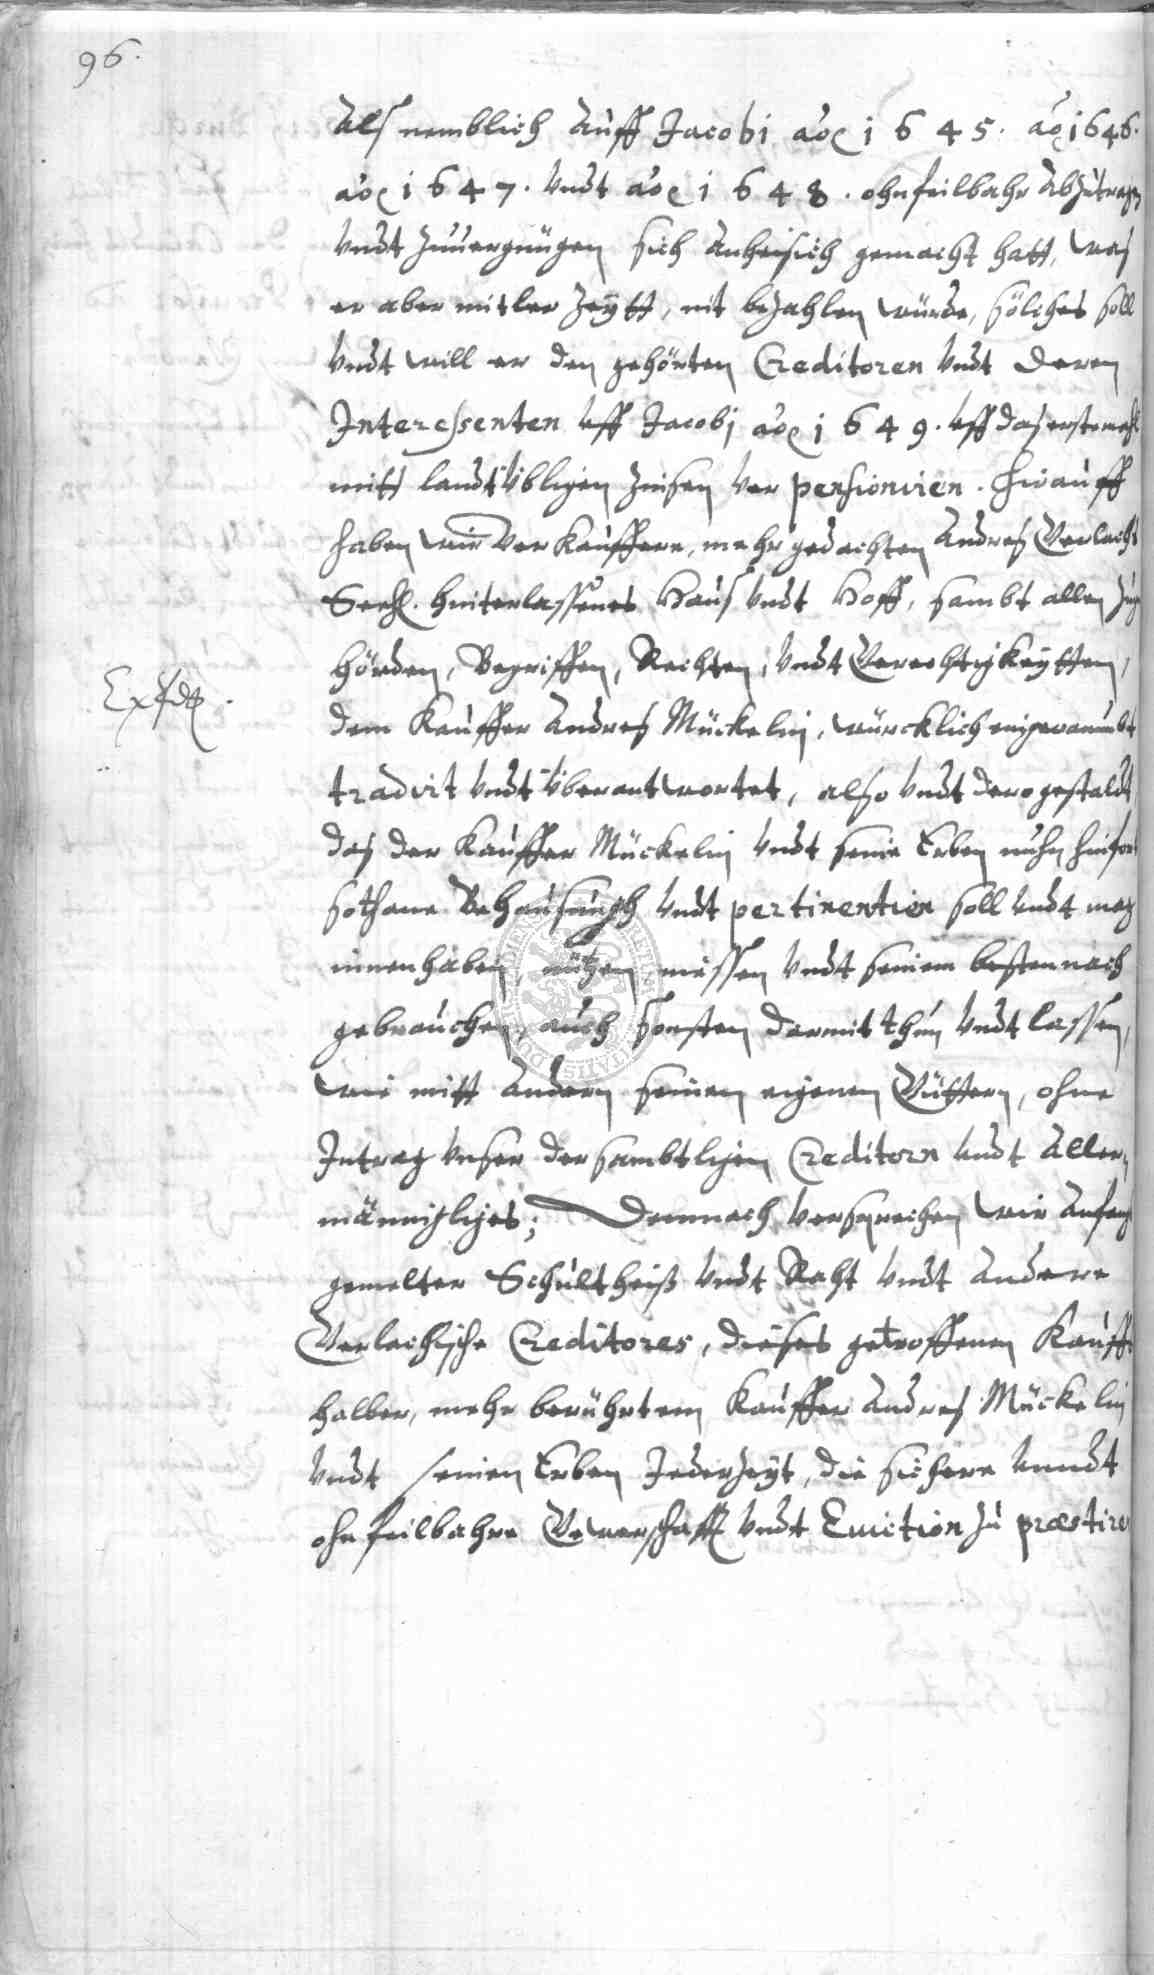 96.
Alß nemblich Auff Jacobi aõ 1645. aõ 1646.
aõ 1647. vndt aõ 1648. ohnfeilbahr Abzutragen
vndt Zuuergnügen sich Anheisich gemacht hatt, was
er aber mitler Zeytt, nit bezahlen würde, solches soll
vndt will er den gehörten Creditoren vndt deren
Interessenten vff Jacobj aõ 1649. vff das erstemahl
mitt landtüblichen Zinsen ver pensioniren. Hirauff
haben wir Verkauffere, mehrgedachten Andreß Gerlachs
Seehl. hinterlassenes Hauß vndt Hoff, sambt allen Zuge
hörden, Begriffen, Rechten, vndt Gerechtigkeytten,
Exfdt.
dem Kauffer Andreß Mückelin, würcklich eingeraumbt
tradirt vndt überantwortet, also vndt dero gestaldt
das der Kauffer Mückelin vndt seine Erben nuhn hinfort
sothane Behausungh vndt pertinentien soll vndt mag
innenhaben nützen niessen vndt seinem besten nach
gebrauchen, auch sonsten darmit thun vndt lassen,
wie mitt andern seinen eigenen Güttern, ohne
Intrag vnser der sambtlichen Creditorn vndt Aller
männichliches; Demnach versprechen wir Anfangs
gemelter Schultheiß vndt Raht vndt Andere
Gerlachische Creditores, dieses getroffenen Kauffs
halber, mehr berührtem Kauffer Andreß Mückelin
vndt seinen Erben Jederzeyt, die sichere vnndt
ohnfeilbahre Gewerschafft vndt Euiction zu præstiren